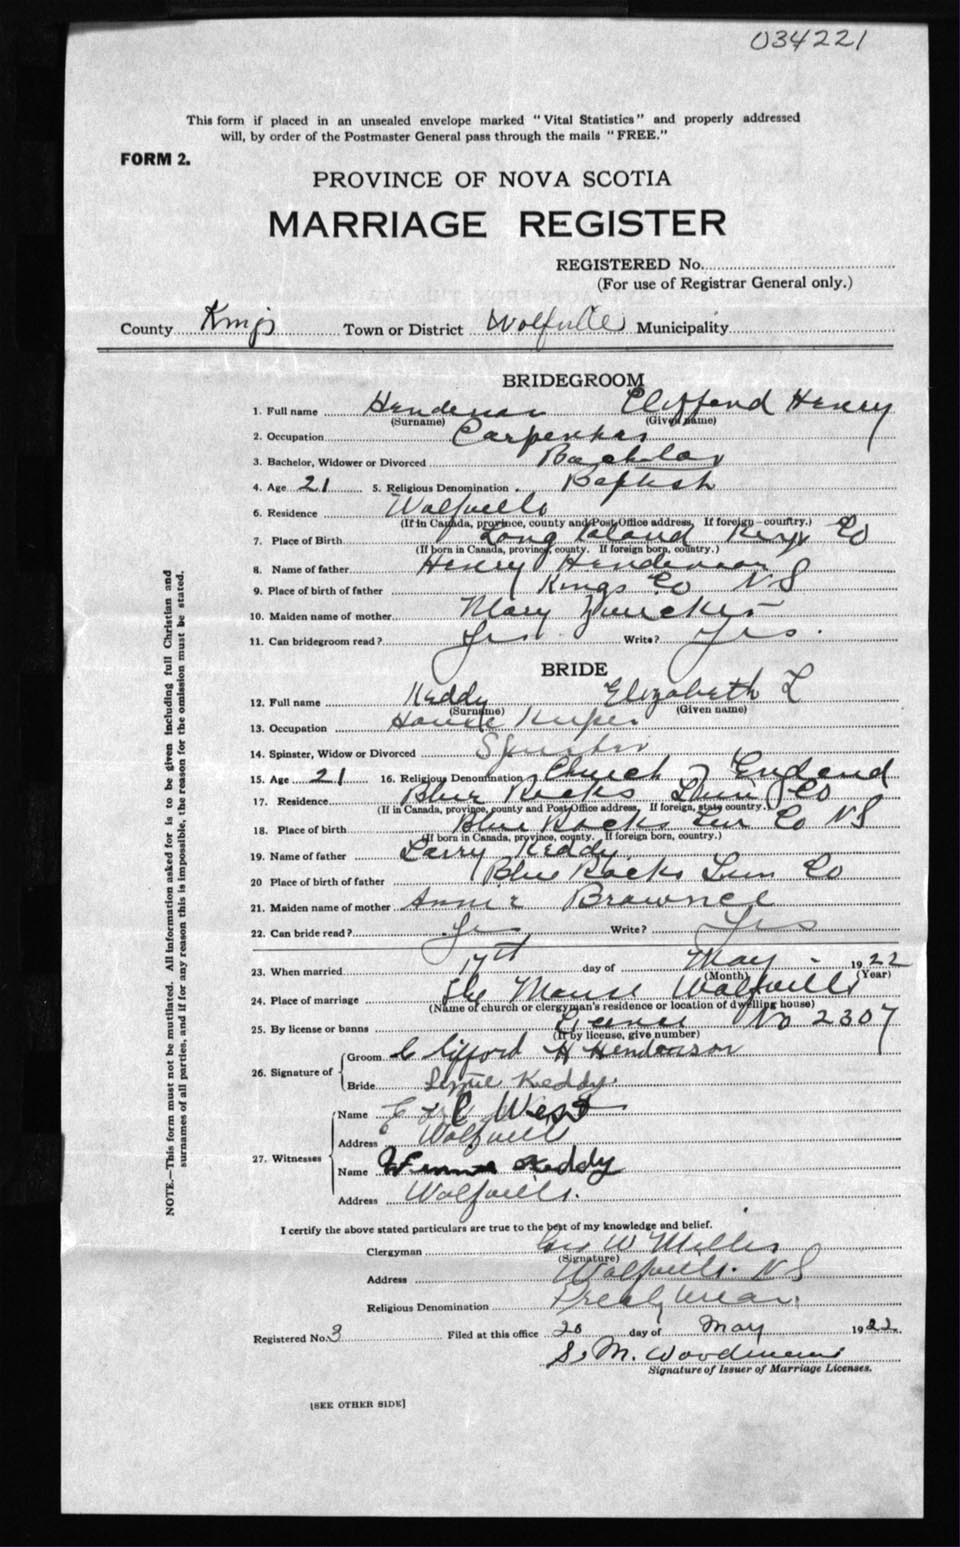 034221
This form if placed in an unsealed envelope marked "Vital Statistics" and properly addressed
will, by order of the Postmaster General pass through the mails "FREE."
FORM 2.
PROVINCE OF NOVA SCOTIA
MARRIAGE REGISTER
REGISTERED No.
(For use of Registrar General only.)
County Kings Town or District Wolfville Municipality
BRIDEGROOM
1. Full name Henderson Clifford Henry
(Surname) (Given name)
2. Occupation Carpenter
3. Bachelor, Widower or Divorced Bachelor
4. Age 21 5. Religious Denomination Baptist
6. Residence Wolfville
(If in Canada, province, county and Post Office address, If foreign—country.)
7. Place of Birth Long Island Kings Co
(If born in Canada, province, county. If foreign born, country.)
8. Name of father Henry Henderson
9. Place of birth of father Kings Co NS
10. Maiden name of mother Mary
11. Can bridegroom read? Yes Write? Yes.
BRIDE
12. Full name Keddy Elizabeth L
(Surname) (Given name)
13. Occupation House Keeper
14. Spinster, Widow or Divorced Spinster
15. Age 21 16. Religious Denomination Church of England
17. Residence Blue Rocks Lun Co
(If in Canada, province, county and Post Office address, If foreign, state country.)
18. Place of birth Blue Rocks Lun Co NS
(If born in Canada, province, county. If foreign born, country.)
19. Name of father Larry Keddy
20 Place of birth of father Blue Rocks Lun Co
21. Maiden name of mother Annie
22. Can bride read? Yes Write? Yes
23. When married 17th day of May 1922
(Month) (Year)
24. Place of marriage The Manse Wolfville
(Name of church or clergyman's residence or location of dwelling house)
25. By license or banns License No 2307
(If by license, give number)
26. Signature of Groom Clifford H Henderson
Bride Keddy.
27. Witnesses Name West
Address Wolfville
Name Keddy
Address Wolfville.
I certify the above stated particulars are true to the best of my knowledge and belief.
Clergyman Geo W Miller
(Signature)
Address Wolfville. NS
Religious Denomination Presbyterian.
Registered No. 3 Filed at this office 20 day of May 1922.
S. M. Woodman
Signature of Issuer of Marriage Licenses.
[SEE OTHER SIDE]
NOTE.—This form must not be mutilated. All information asked for is to be given including full Christian and
surnames of all parties, and if for any reason this is impossible, the reason for the omission must be stated.